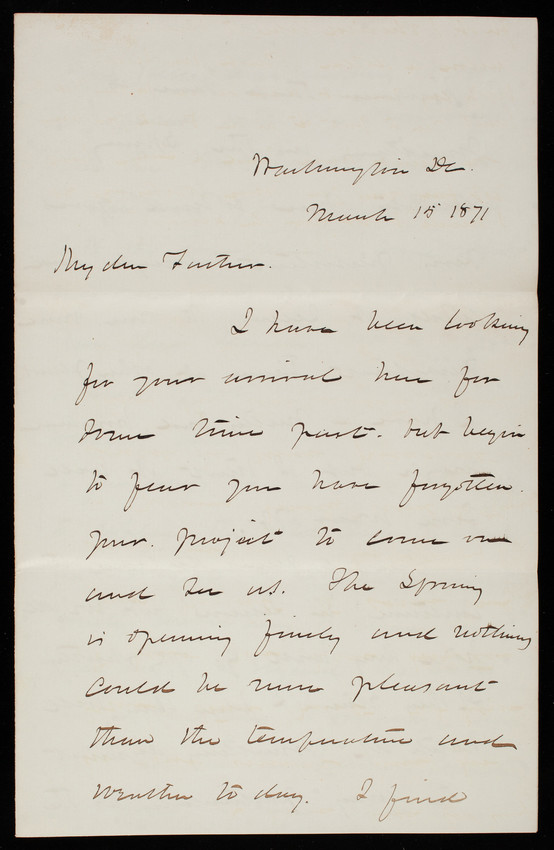 Washington DC.
March 15 1871
My dear Father.
I have been looking
for your arrival here for
some time past. but begin
to fear you have forgotten
your project to come on
and see us. The Spring
is opening finely and nothing
could be more pleasant
than the temperature and
weather to day. I find